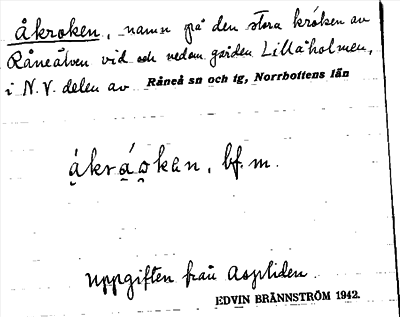 åkroken, namn på den stora kröken av
Råneälven vid och nedom gården Lillåholmen,
i N.V. delen av Råneå sn och tg, Norrbottens län
åkråokan, bf. m.
Uppgiften från Aspliden.
EDVIN BRÄNNSTRÖM 1942.